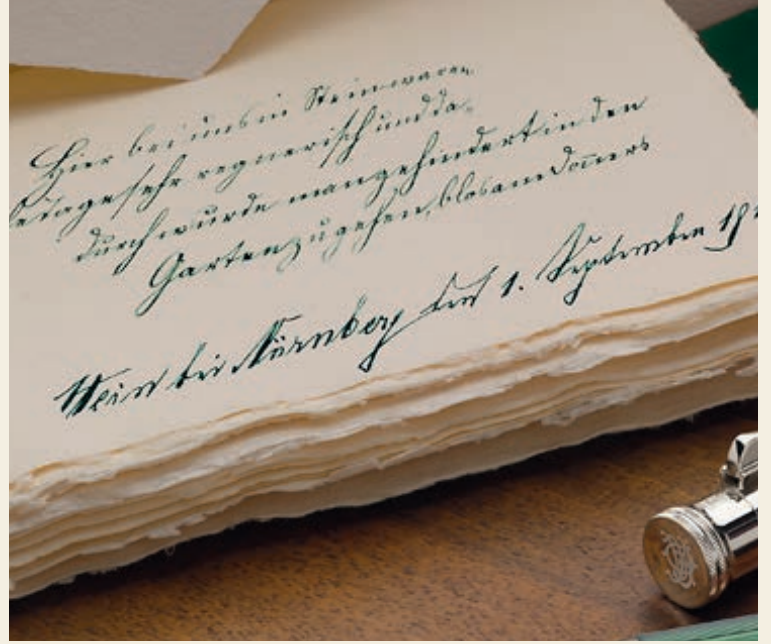 Hier bei uns in Stein waren
tage sehr regnerisch und da-
durch wurde man gehindert in den
Garten zu gehen, blos am Donners
Stein bei Nürnberg den 1. September